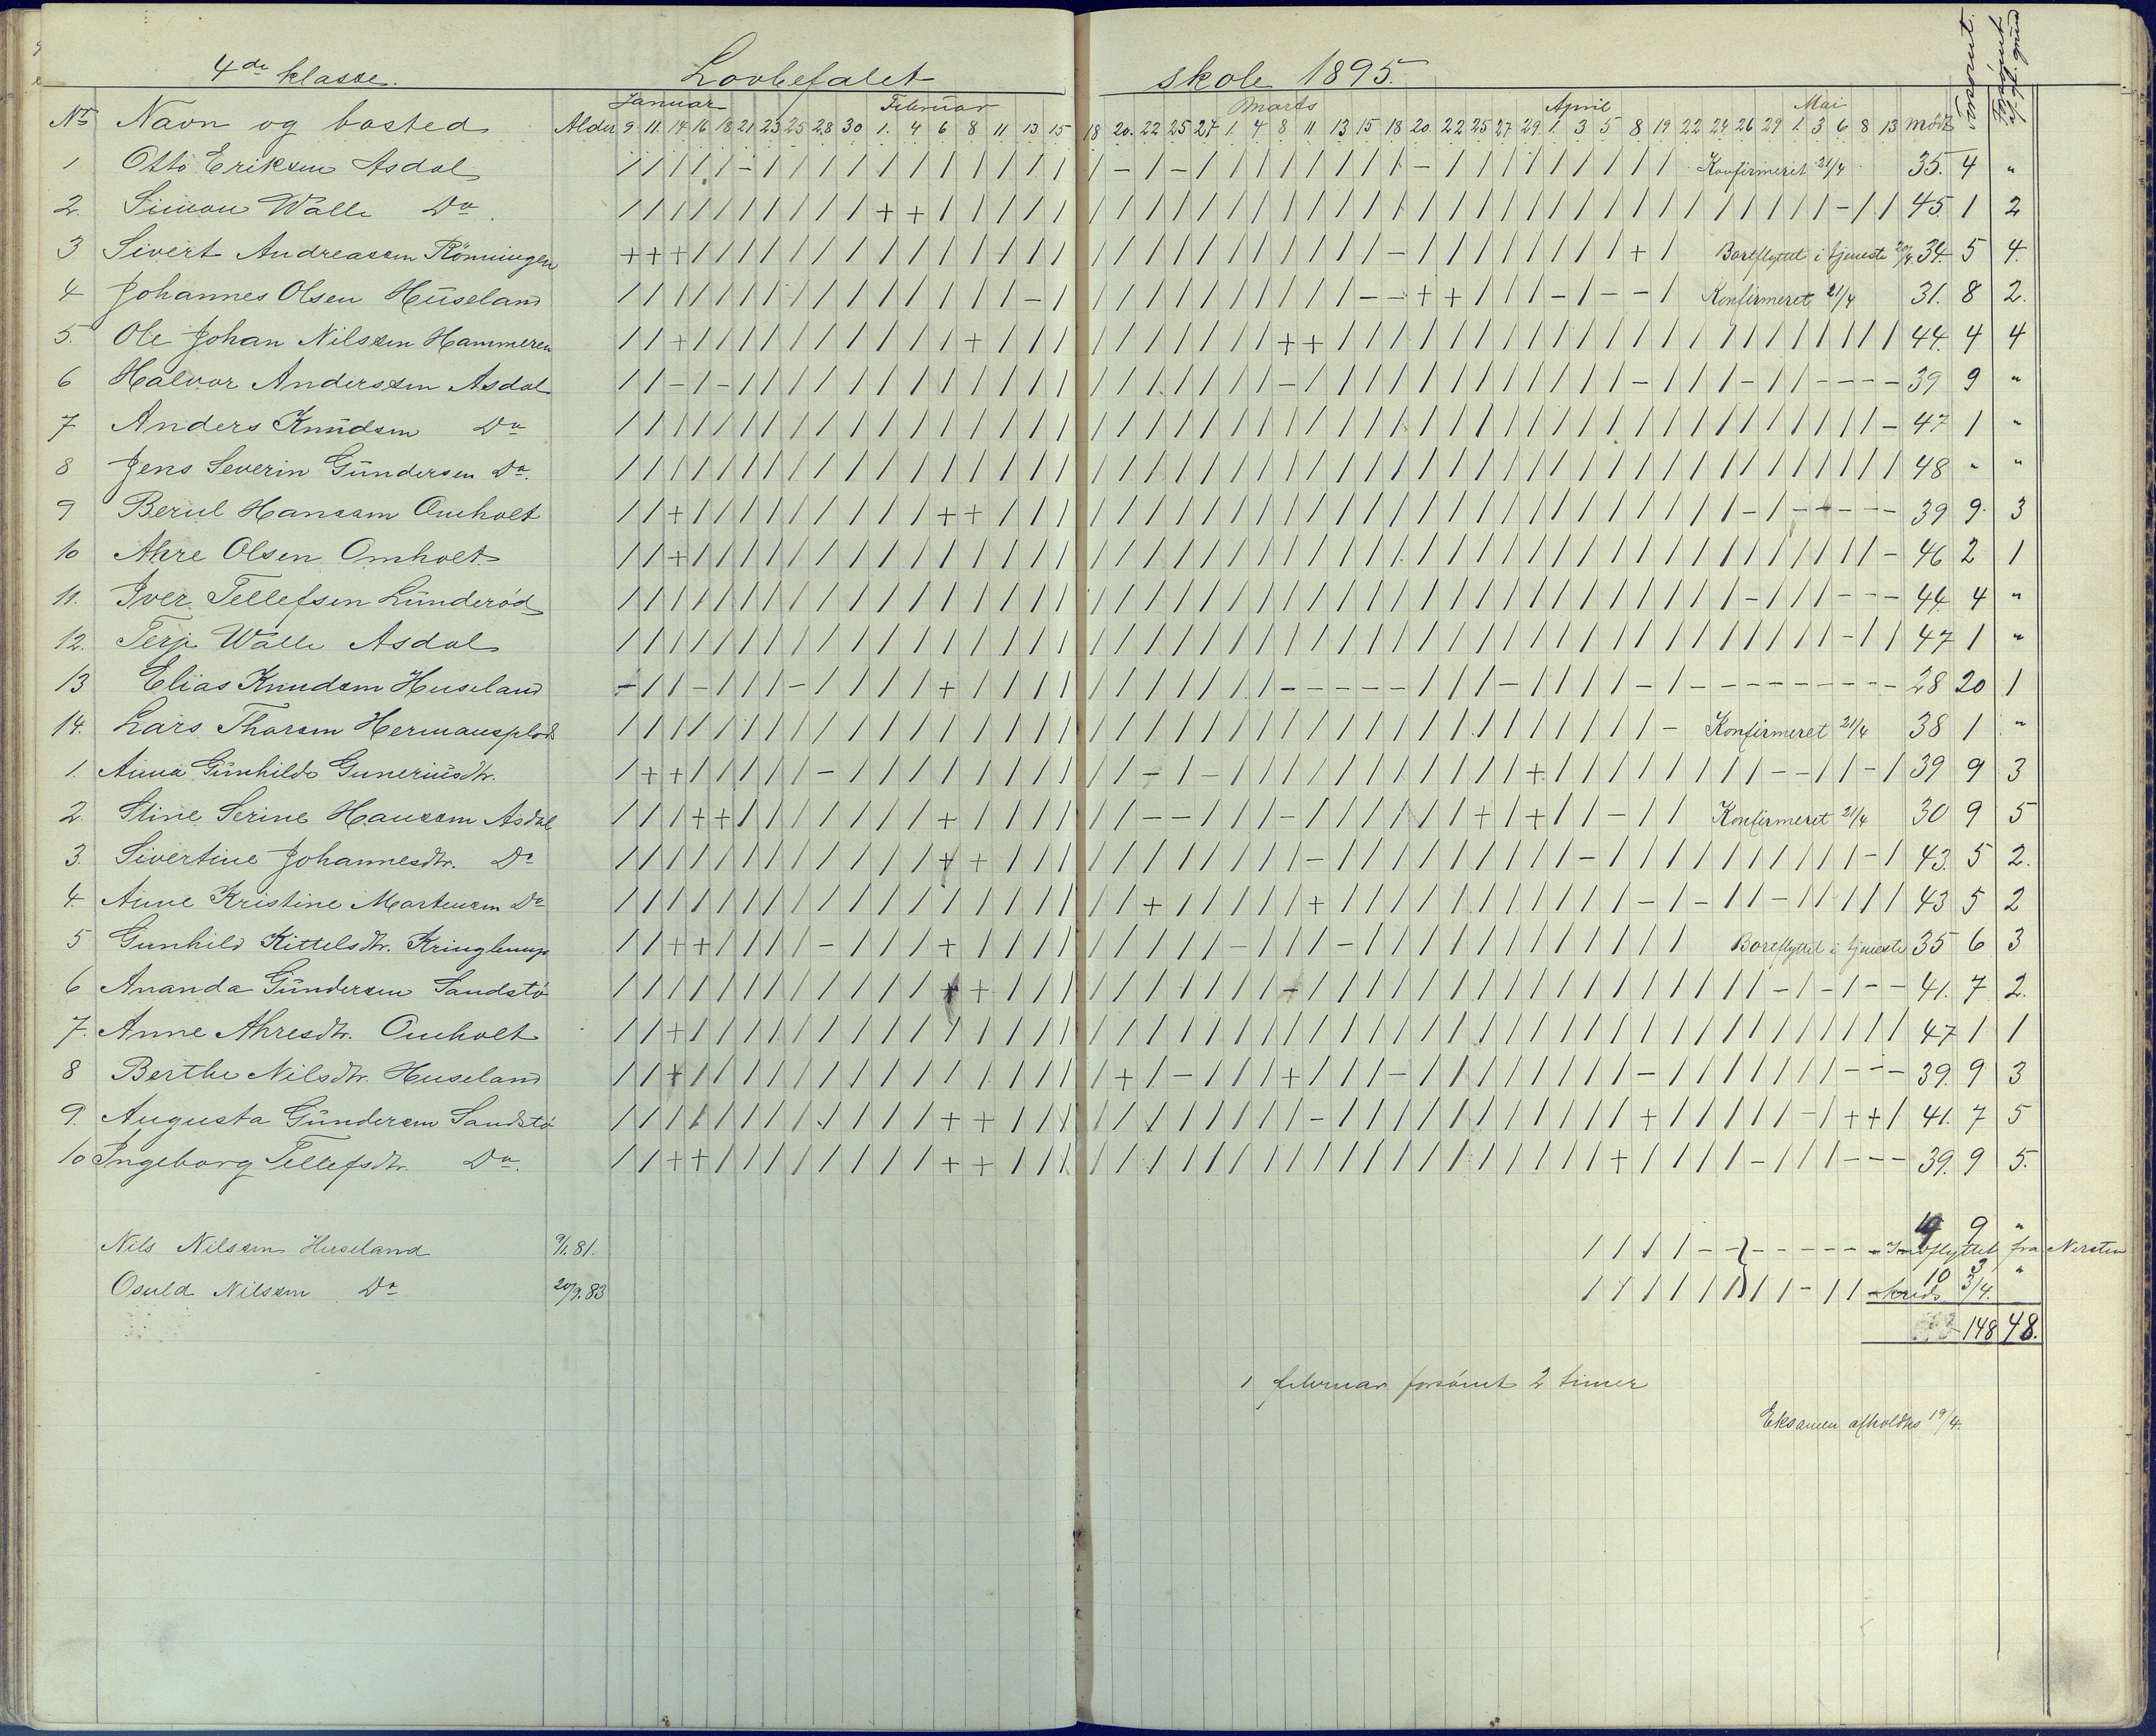 4de klasse. Lovbefalet skole 1895.
Januar Februar Marts April Mai
No Navn og bosted Alder 9 11 14 16 18 21 23 25 28 30 1. 4 6 8 11 13 15 18 20. 22 25 27 1. 4 8 11 13 15 18 20. 22 25 27 29. 1. 3 5 8 19 22 24 26 29 1. 3 6 8 13 mødt Forsømt. Forsømt af gyl. grund
1 Otto Eriksen Asdal / / / / / - / / / / / / / / / / / / - / - / / / / / / / / - / / / / / / / / / Konfirmeret 21/4 35. 4 "
2. Simon Walle Do / / / / / / / / / / + + / / / / / / / / / / / / / / / / / / / / / / / / / / / / / / / / / - / / 45 1 2
3 Sivert Andreassen Rönningen + + + / / / / / / / / / / / / / / / / / / / / / / / / / - / / / / / / / / + / Bortflyttet i tjeneste 20/4. 34. 5 4.
4 Johannes Olsen Huseland / / / / / / / / / / / / / / / - / / / / / / / / / / / - - + + / / / - / - - / Konfirmeret 21/4 31. 8 2.
5. Ole Johan Nilssen Hammeren / / + / / / / / / / / / / + / / / / / / / / / / + + / / / / / / / / / / / / / / / / / / / / / / 44. 4 4
6 Halvor Anderssen Asdal / / - / - / / / / / / / / / / / / / / / / / / / - / / / / / / / / / / / / - / / / - / / - - - - 39 9 "
7 Anders Knudsen Do / / / / / / / / / / / / / / / / / / / / / / / / / / / / / / / / / / / / / / / / / / / / / / / - 47 1 "
8 Jens Severin Gundersen Do. / / / / / / / / / / / / / / / / / / / / / / / / / / / / / / / / / / / / / / / / / / / / / / / / 48 " "
9 Berul Hanssen Omholt / / + / / / / / / / / / + + / / / / / / / / / / / / / / / / / / / / / / / / / / / - / - - - - - 39 9. 3
10 Ahre Olsen Omholt / / + / / / / / / / / / / / / / / / / / / / / / / / / / / / / / / / / / / / / / / / / / / / / - 46 2 1
11. Iver Tellefsen Lunderød / / / / / / / / / / / / / / / / / / / / / / / / / / / / / / / / / / / / / / / / / - / / / - - - 44 4 "
12. Terje Walle Asdal / / / / / / / / / / / / / / / / / / / / / / / / / / / / / / / / / / / / / / / / / / / / / - / / 47 1 "
13 Elias Knudsen Huseland - / / - / / / - / / / / + / / / / / / / / / / / - - - - - / / / - / / / / - / - - - - - - - - - 28 20 1
14. Lars Thorsen / / / / / / / / / / / / / / / / / / / / / / / / / / / / / / / / / / / / / / - Konfirmeret 21/4 38 1 "
1. Anna Gunhilds Guneriusdtr. / + + / / / / / - / / / / / / / / / / - / - / / / / / / / / / / / + / / / / / / / / - - / / - / 39 9 3
2. Stine Serine Hanssen Asdal / / / + + / / / / / / / + / / / / / / - - / / / - / / / / / / + / + / / - / / Konfirmeret 21/4 30 9 5
3. Sivertine Johannesdtr. Do / / / / / / / / / / / / + + / / / / / / / / / / / - / / / / / / / / / - / / / / / / / / / / - / 43. 5 2.
4. Anne Kristine Martensen Do / / / / / / / / / / / / / / / / / / / + / / / / / + / / / / / / / / / / / - / - / / - / / / / / 43 5 2
5 Gunhild Kittelsdtr. / / + + / / / / - / / / + / / / / / / / / / - / / / - / / / / / / / / / / / / Bortflyttet i tjeneste 35 6 3
6 Ananda Gundersen Sandstø / / / / / / / / / / / / + + / / / / / / / / / / - / / / / / / / / / / / / / / / / / - / - / - - 41. 7 2.
7. Anne Ahresdtr. Omholt / / + / / / / / / / / / / / / / / / / / / / / / / / / / / / / / / / / / / / / / / / / / / / / / 47 1 1
8 Berthe Nilsdtr. Huseland / / + / / / / / / / / / / / / / / / + / - / / / + / / / - / / / / / / / / - / / / / / / / - - - 39. 9 3
9. Augusta Gundersen Sandstø / / / / / / / / / / / / + + / / / / / / / / / / / - / / / / / / / / / / / + / / / / / - / + + / 41. 7 5
10 Ingeborg Tellefsdtr. Do. / / + + / / / / / / / / + + / / / / / / / / / / / / / / / / / / / / / / + / / / / - / / / - - - 39. 9 5.
Nils Nilssen Huseland 9/1.81. / / / / - - - - - - - - - 4 9 " Indflyttet fra Nersten
Osuld Nilssen Do 20/9.83 / / / / / / / / - / / - 10 3 " kreds 3/4.
148 48.
1 februar forsømt 2 timer
Eksamen afholdtes 19/4.